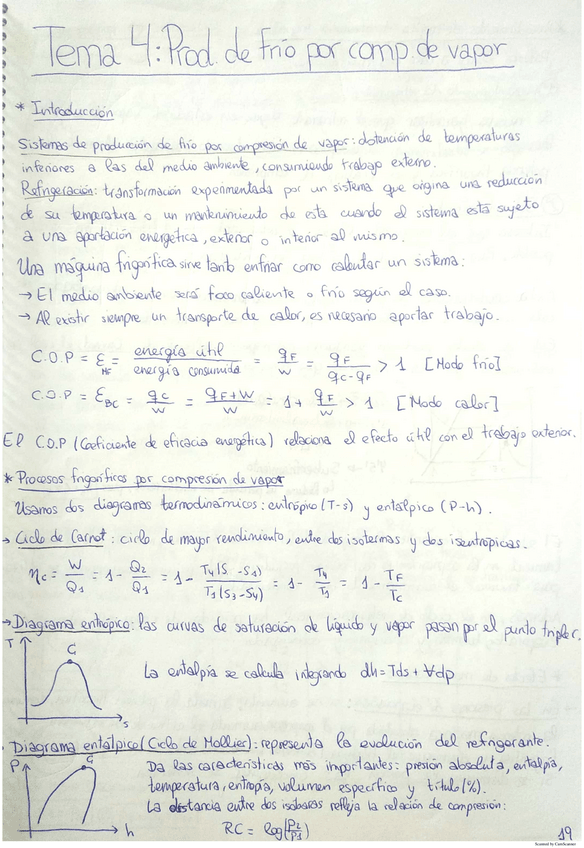 Tema 4: Prod. de frío por comp. de vapor
* Introducción
Sistemas de producción de frío por compresión de vapor: obtención de temperaturas
inferiores a las del medio ambiente, consumiendo trabajo externo.
Refrigeración: transformación experimentada por un sistema que origina una reducción
de su temperatura o un mantenimiento de esta cuando el sistema está sujeto
a una aportación energética, exterior o interior al mismo.
Una máquina frigorífica sirve tanto enfriar como calentar un sistema:
→ El medio ambiente será foco caliente o frío según el caso.
→ Al existir siempre un transporte de calor, es necesario aportar trabajo.
C.O.P = ε_MF = energía útil / energía consumida = q_F / w = q_F / (q_C - q_F) > 1 [Modo frío]
C.O.P = ε_BC = q_C / w = (q_F + w) / w = 1 + q_F / w > 1 [Modo calor]
El C.O.P (Coeficiente de eficacia energética) relaciona el efecto útil con el trabajo exterior.
* Procesos frigoríficos por compresión de vapor
Usamos dos diagramas termodinámicos: entrópico (T-s) y entálpico (P-h).
→ Ciclo de Carnot: ciclo de mayor rendimiento, entre dos isotermas y dos isentrópicas.
η_c = W / Q_1 = 1 - Q_2 / Q_1 = 1 - T_4(S - S_1) / T_1(S_3 - S_4) = 1 - T_4 / T_1 = 1 - T_F / T_C
→ Diagrama entrópico: las curvas de saturación de líquido y vapor pasan por el punto tripler.
T
G
s
La entalpía se calcula integrando dh = Tds + Vdp
Diagrama entálpico (Ciclo de Mollier): representa la evolución del refrigerante.
P
G
h
Da las características más importantes: presión absoluta, entalpía,
temperatura, entropía, volumen específico y título (%).
La distancia entre dos isóbaras refleja la relación de compresión:
RC = log(P_2 / P_1)
19
Scanned by CamScanner